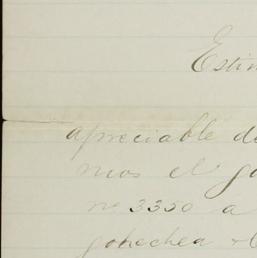 Estim
apreciable de
mos el ga
nº 3350 a
gohechea &